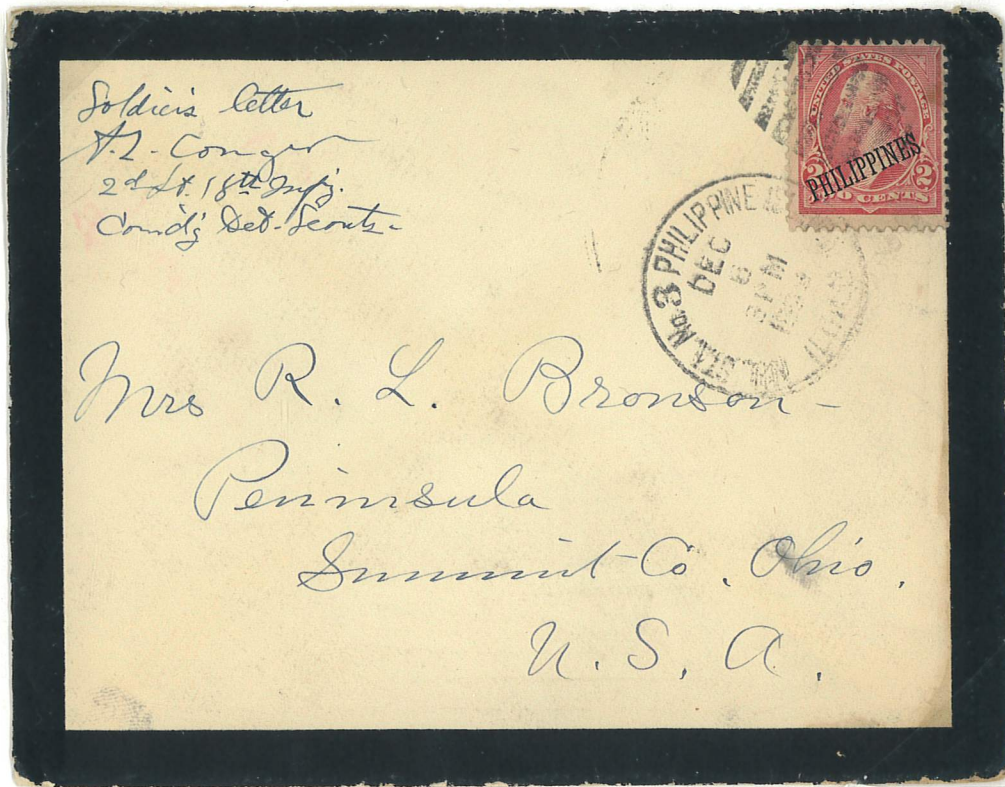 Soldier's letter
A. L. Conger
2d Lt. 18th Inf'y.
Comd'g Det. Scouts-
UNITED STATES POSTAGE
PHILIPPINES
2 2
TWO CENTS
MIL. STA. No. 3 PHILIPPINE
DEC
6
PM
Mrs R. L. Bronson-
Peninsula
Summit Co. Ohio.
U. S. A.